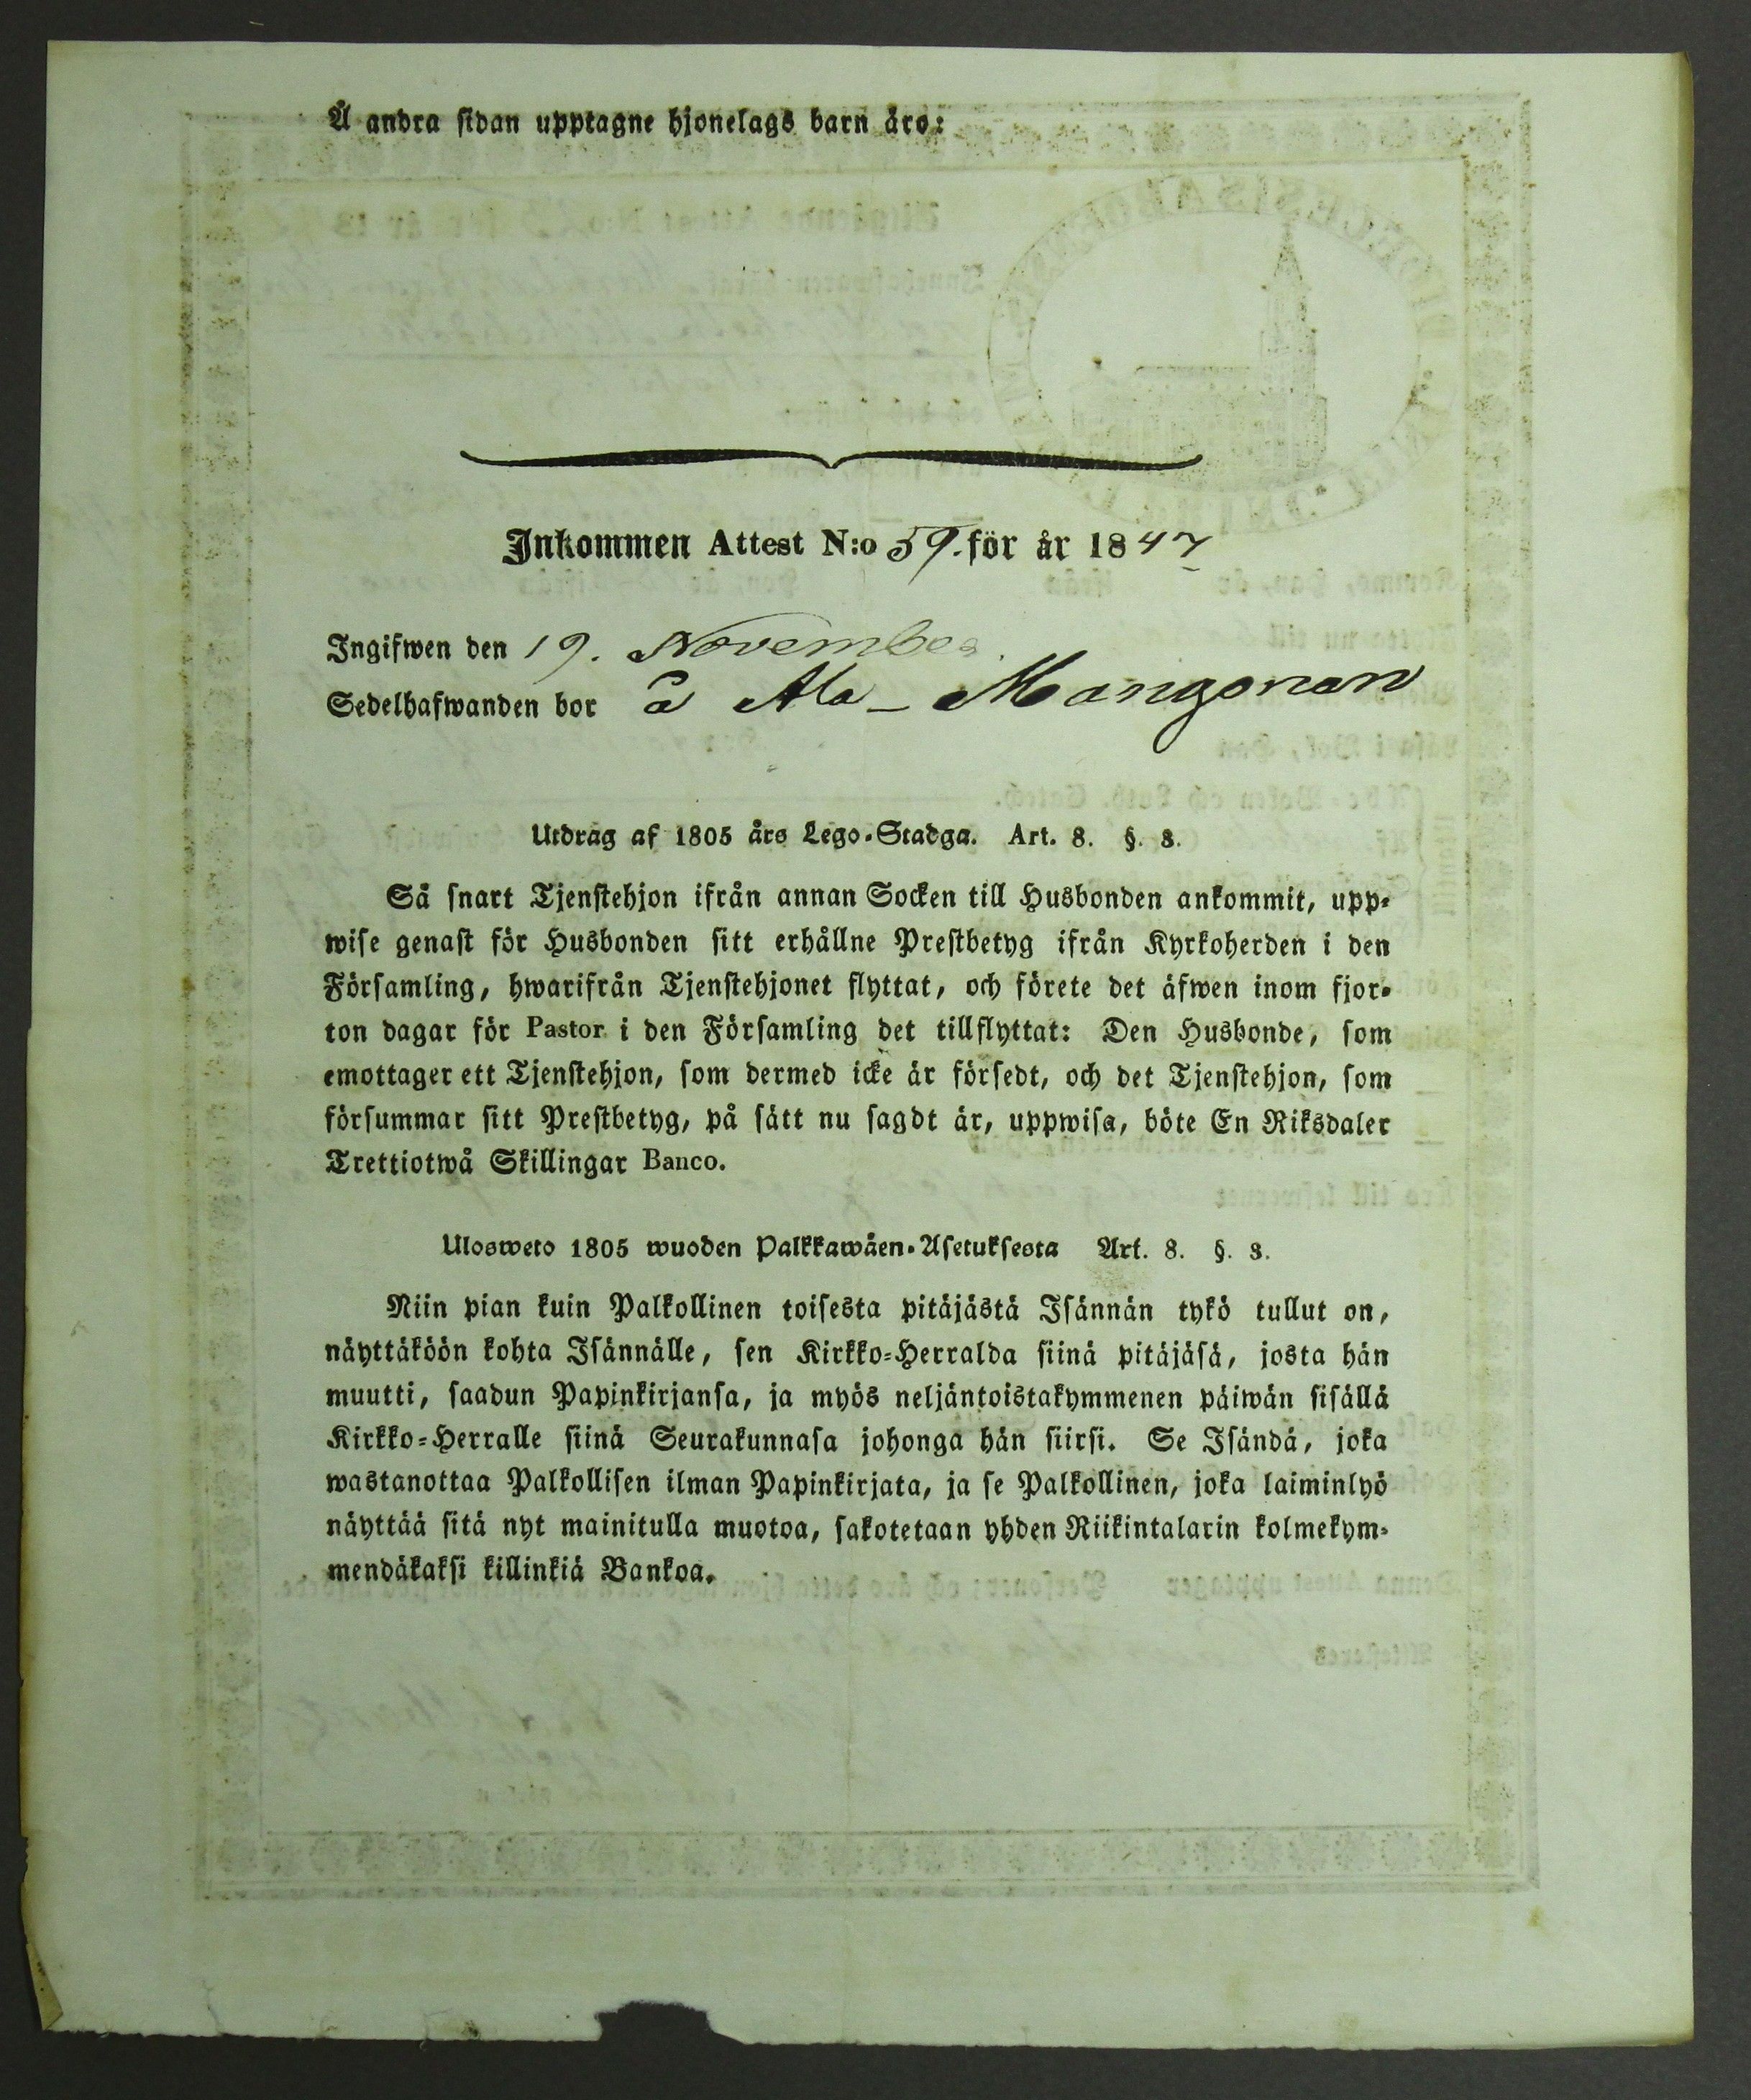 Å andra sidan upptagne hjonelags barn äro:
Inkommen Attest N:o 59. för år 1847
Ingifwen den 19. November
Sedelhafwanden bor å Ala-Mangonen
Utdrag af 1805 års Lego-Stadga. Art. 8. §. 3.
Så snart Tjenstehjon ifrån annan Socken till Husbonden ankommit, upp-
wise genast för Husbonden sitt erhållne Prestbetyg ifrån Kyrkoherden i den
Församling, hwarifrån Tjenstehjonet flyttat, och förete det äfwen inom fjor-
ton dagar för Pastor i den Församling det tillflyttat: Den Husbonde, som
emottager ett Tjenstehjon, som dermed icke är försedt, och det Tjenstehjon, som
försummar sitt Prestbetyg, på sätt nu sagdt är, uppwisa, böte En Riksdaler
Trettiotwå Skillingar Banco.
Ulosweto 1805 wuoden Palkkawäen-Asetuksesta Art. 8. §. 3.
Niin pian kuin Palkollinen toisesta pitäjästä Isännän tykö tullut on,
näyttäköön kohta Isännälle, sen Kirkko-Herralda siinä pitäjäsä, josta hän
muutti, saadun Papinkirjansa, ja myös neljäntoistakymmenen päiwän sisällä
Kirkko-Herralle siinä Seurakunnasa johonga hän siirsi. Se Isändä, joka
wastanottaa Palkollisen ilman Papinkirjata, ja se Palkollinen, joka laiminlyö
näyttää sitä nyt mainitulla muotoa, sakotetaan yhden Riikintalarin kolmekym-
mendäkaksi killinkiä Bankoa.